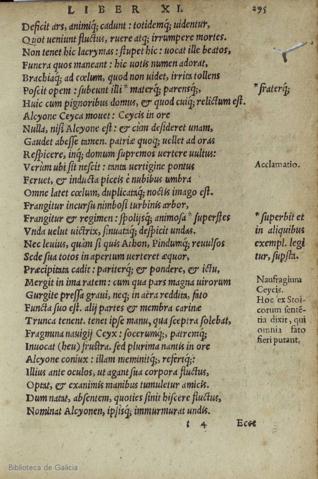 LIBER XI. 295
Deficit ars, animiq; cadunt: totidemq; uidentur,
Quot ueniunt fluctus, ruere atq; irrumpere mortes.
Non tenet hic lacrymas: stupet hic: uocat ille beatos,
Funera quos maneant: hic uotis numen adorat,
Brachiaq; ad cœlum, quod non uidet, irrita tollens
Poscit opem: subeunt illi * materq; parensq;, * fraterq;
Huic cum pignoribus domus, & quod cuiq; relictum est.
Alcyone Ceyca mouet: Ceycis in ore
Nulla, nisi Alcyone est: & cùm desideret unam,
Gaudet abesse tamen. patriæ quoq; uellet ad oras
Respicere, inq; domum supremos uertere uultus:
Verùm ubi sit nescit: tanta uertigine pontus Acclamatio.
Feruet, & inducta piceis è nubibus umbra
Omne latet cœlum, duplicataq; noctis imago est.
Frangitur incursu nimbosi turbinis arbor,
Frangitur & regimen: spolijsq; animosa * superstes * superbit et
Vnda uelut uictrix, sinuatasq; despicit undas. in aliquibus
Nec leuius, quàm si quis Athon, Pindumq; reuulsos exempl. legi
Sede sua totos in apertum uerteret æquor, tur, supsta.
Præcipitata cadit: pariterq; & pondere, & ictu,
Mergit in ima ratem: cum qua pars magna uirorum Naufragium
Gurgite pressa graui, neq; in aëra reddita, fato Ceycis.
Functa suo est. alij partes & membra carinæ Hoc ex Stoi-
Trunca tenent. tenet ipse manu, qua sceptra solebat, corum sentē-
Fragmina nauigij Ceyx: socerumq;, patremq; tia dixit, qui
Inuocat (heu) frustra. sed plurima nantis in ore omnia fato
Alcyone coniux: illam meminitq;, refertq;: fieri putant.
Illius ante oculos, ut agant sua corpora fluctus,
Optat, & exanimis manibus tumuletur amicis.
Dum natat, absentem, quoties sinit hiscere fluctus,
Nominat Alcyonen, ipsisq; immurmurat undis.
t 4 Ecce
Biblioteca de Galicia